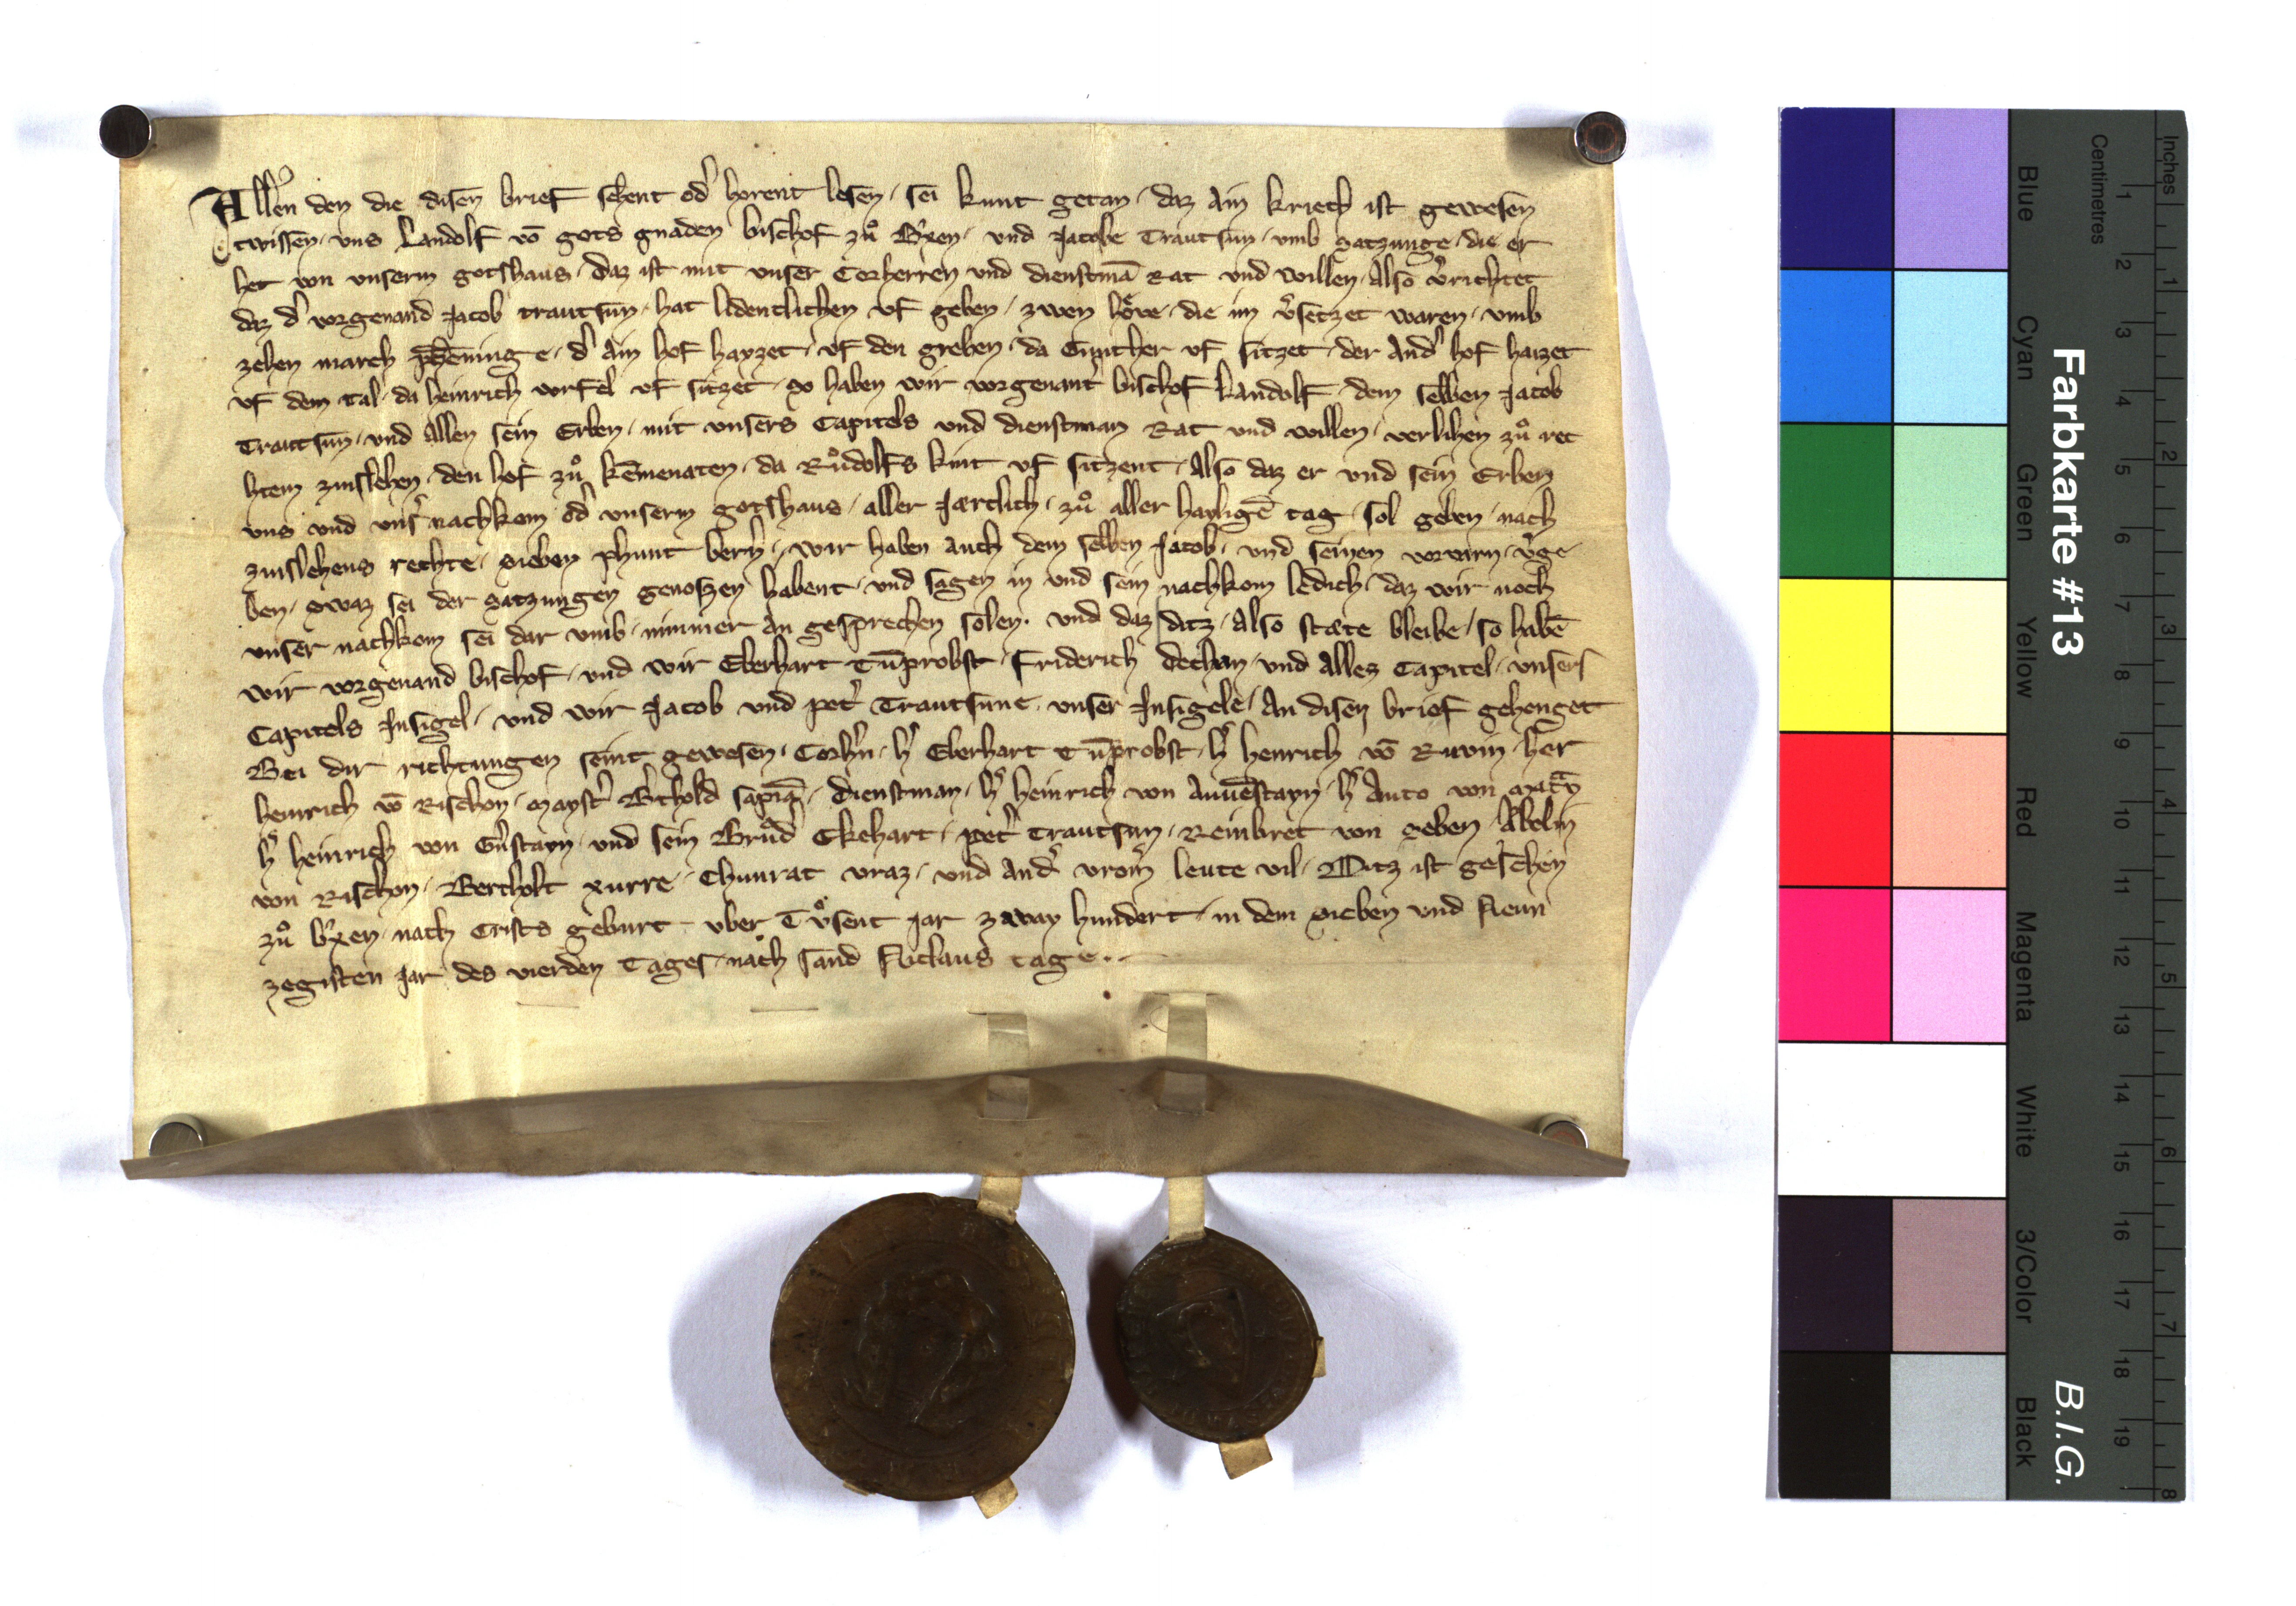 Allen den die disen brief sehent od̾ horent lesen / sei kunt getan / daz ain kriech ist gewesen
twissen / uns Landolf vō gots gnaden bischof zuͦ B̾xen / und Jacobe Trautsun / umb satzunge / die er
het von unserm gotshaus / daz ist mit unser Corherren und dienstmā Rat und willen / Also v̾richtet
daz d̾ vorgenand Jacob trautsun / hat lidentlichen uf geben / zwen hoͤve / die im v̾setzet waren / umb
zehen march phēninge / d̾ ain hof hayzet / uf den greben / da Gunther uf sitzet / der And̾ hof haizet
uf dem tal / da heinrich vorfel uf sitzet / so haben wir vorgenant̾ bischof Landolf / dem selben Jacob
Trautsun / und Allen sein Erben / mit unsers Capitels und dienstman Rat und willen / verlihen zuͦ rec
htem zinslehen / den hof zuͦ kēmenaten / da Ruͦdolfs kint uf sitzent / Also daz er und sein Erben
uns und uns̾ nachkom od̾ unserm gotshaus / aller Jærclich / zuͦ aller hayligē tag / sol geben / nach
zinslehens rechte / sieben phunt bern̾ / wir haben auch dem selben Jacob / und seinen vorvarn / v̾ge
ben / swaz sei der satzungen genoszen habent / und sagen in und sein nachkom ledich / daz wir noch
unser nachkom sei dar umb / nimmer an gesprechen solen . und daz ditz / Also stæte bleibe / so habē
wir vorgenand bischof / und wir Eberhart Tūprobst / Friderich dechan / und Alles Capitel / unsers
Capitels Insigel / und wir Jacob und pet̾ Trautsune / unser Insigele / An disen brief gehenget
Bei dir richtungen seint gewesen / Corh̾n / h̾ Eberhart Tūprobst / h̾ henrich vō Ruvin / her
heinrich vō Rischon / mayst̾ B̾thold sapiā / dienstman / h̾ heinrich von Auuēstayn / h̾ Auto von
h̾ heinrich von Gu̾stayn / und sein Bruͦd̾ Ekehart / pet̾ Trautsun / Reinbret von seben / Abelin
von Rischon / Bertholt xurre / Chunrat vraz / und And̾ vrom̾ leute vil / Ditz ist geschehen
zuͦ b̾xen / nach Crists geburt / uber Tuͦsent jar zway hundert / in dem sieben und Neun
zegisten jar des vierden Tages / nach sand Niclaus tage . .
Farbkarte #13
B.I.G.
Blue Cyan Green Yellow Red Magenta White 3/Color Black
Centimetres
1 2 3 4 5 6 7 8 9 10 11 12 13 14 15 16 17 18 19
Inches
1 2 3 4 5 6 7 8